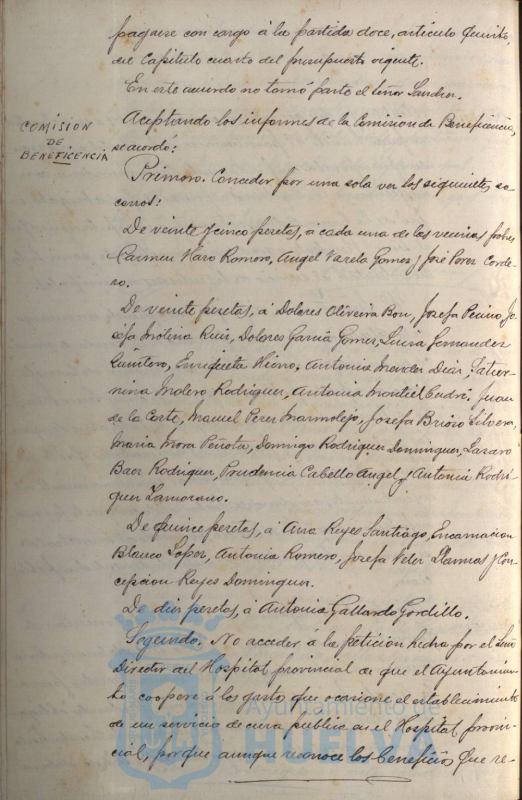 pagarse con cargo á la partida doce, artículo quinto,
del Capítulo cuarto del presupuesto vigente.
En este acuerdo no tomó parte el señor
Aceptando los informes de la Comisión de Beneficencia,
se acordó:
COMISION
DE
BENEFICENCIA
Primero. Conceder por una sola vez los siguientes so-
corros:
De veinte y cinco pesetas, á cada una de los vecinos pobres
Carmen Haro Romero, Angel Varela Gomez y José Perez Corde-
ro.
De veinte pesetas, á Dolores Oliveira Bon, Josefa Jo-
sefa Molina Ruiz, Dolores Garcia Gomez, Luisa Fernandez
Quintero, Enriqueta Hierro, Antonia Mendez Diaz, Satur-
nina Molero Rodriguez, Antonia Montiel Juan
de la Corte, Manuel Perez Marmolejo, Josefa Brioso Silvera,
Maria Mora Peñota, Domingo Rodriguez Dominguez, Lazaro
Baez Rodriguez, Prudencia Cabello Angel y Antonia Rodri-
guez Zamorano.
De quince pesetas, á Ana Reyes Santiago, Encarnacion
Blanco Lopez, Antonia Romero, Josefa Velez Llamas y Con-
cepcion Reyes Dominguez.
De diez pesetas, á Antonia Gallardo Gordillo.
Segundo. No acceder á la petición hecha por el Señor
Director del Hospital provincial de que el Ayuntamien-
to coopere á los gastos que ocasione el establecimiento
de un servicio de cura publica en el Hospital provin-
cial, porque aunque reconoce los beneficios que re-
Ayuntamiento de
HUELVA